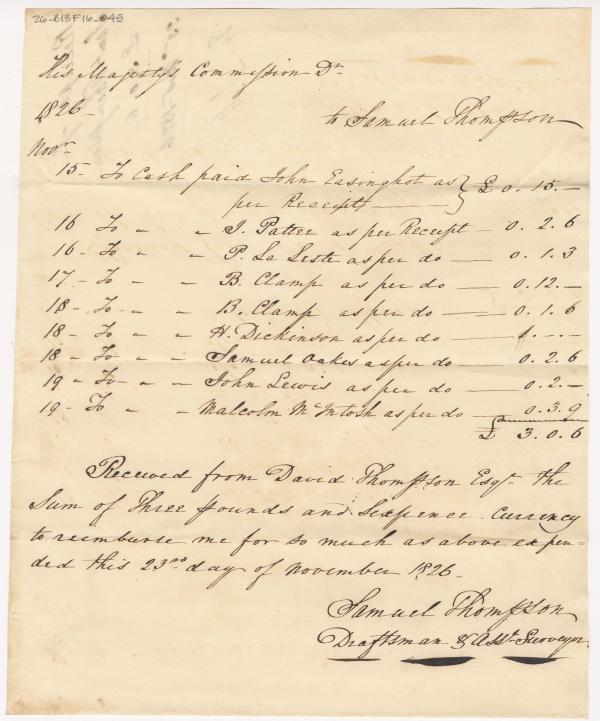 26-B13F16-045
His Majestys Commission Dr
1826 to Samuel Thompson
Novr
15- To Cash paid John Easinghot as } £ 0. 15. —
per Receipt
16 To " " J. Patter as per Receipt - 0. 2. 6
16- To " " P. La Leste as per do — 0. 1. 3
17- To " " B. Clamp as per do — 0. 12. —
18- To " " B. Clamp as per do — 0. 1. 6
18- To " " H. Dickinson as per do — 1. - . -
18 - To " " Samuel Oakes as per do — 0. 2. 6
19 - To " " John Lewis as per do — 0. 2. —
19 - To " " Malcolm McIntosh as per do — 0. 3. 9
£ 3. 0. 6
Received from David Thompson Esqr. the
Sum of Three pounds and Sixpence Currency
to reimburse me for so much as above expen=
ded this 23rd day of November 1826 -
Samuel Thompson
Draftsman & Asst. Surveyor